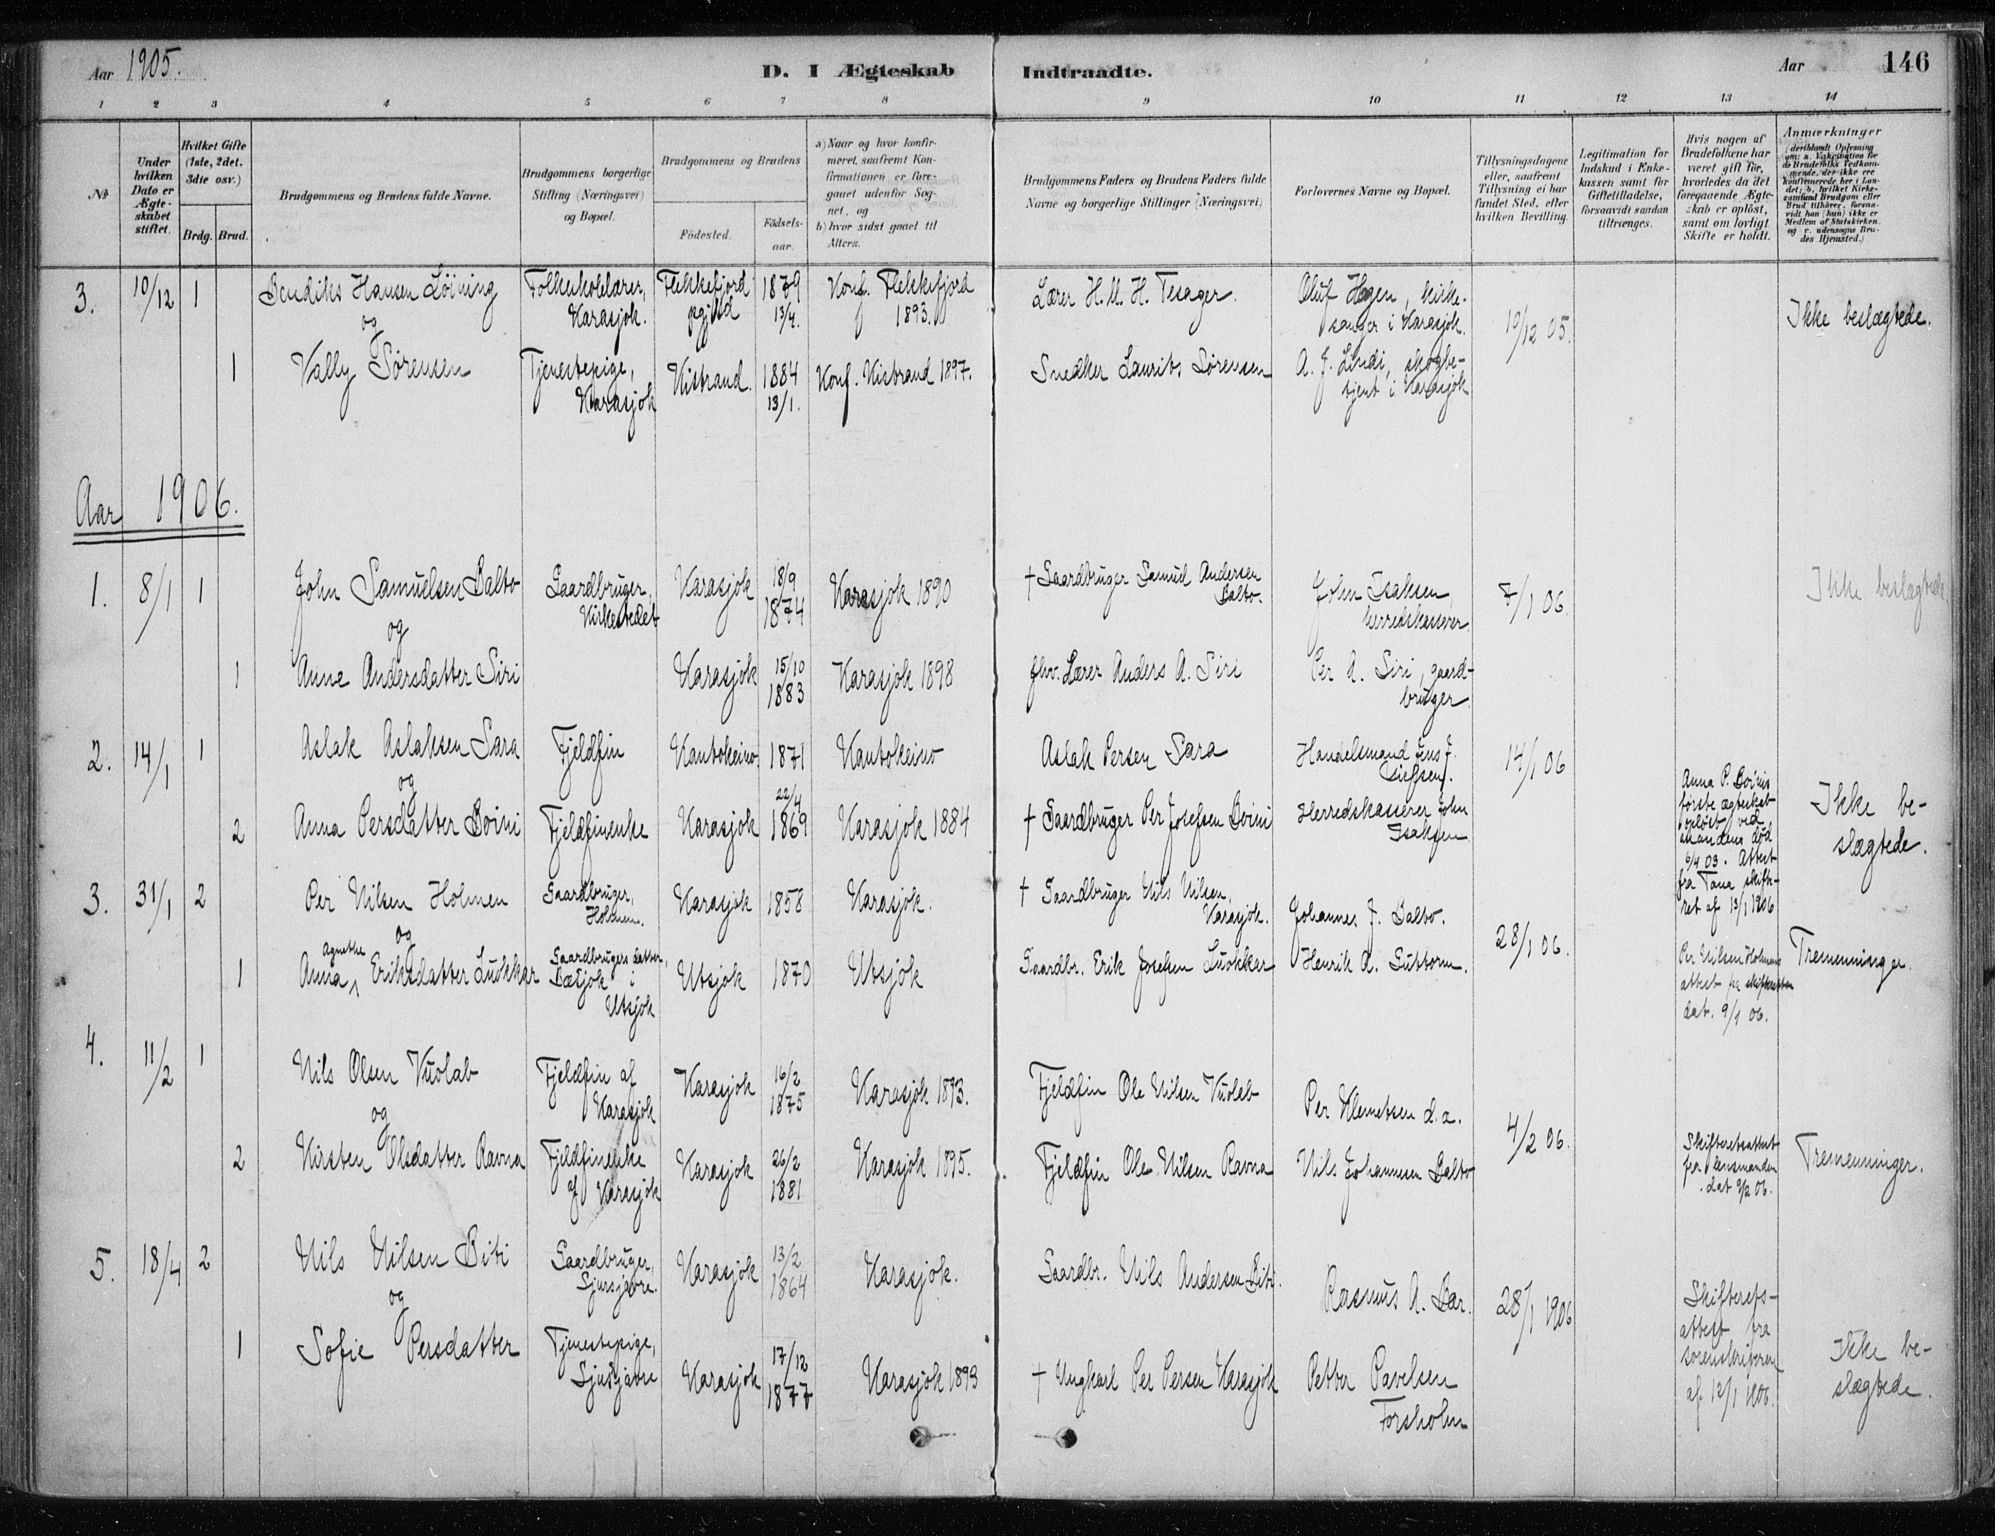 Aar 1905.
D. I Ægteskab Indtraadte.
Aar 146
1 2 3 4 5 6 7 8 9 10 11 12 13 14
No
Under hvilken Dato er Ægteskabet stiftet.
Hvilket Gifte (1ste, 2det, 3die osv.)
Brdg. Brud.
Brudgommens og Brudens fulde Navne.
Brudgommens borgerlige Stilling (Næringsvei) og Bopæl.
Brudgommens og Brudens
Födested. Födselsaar.
a) Naar og hvor konfirmeret, saafremt Konfirmationen er foregaaet udenfor Sognet, og
b) hvor sidst gaaet til Alters.
Brudgommens Faders og Brudens Faders fulde Navne og borgerlige Stillinger (Næringsvei)
Forlovernes Navne og Bopæl.
Tillysningsdagene eller, saafremt Tillysning ei har fundet Sted, efter hvilken Bevilling.
Legitimation for Indskud i Enkekassen samt for Giftetilladelse, forsaavidt saadan tiltrænges.
Hvis nogen af Brudefolkene har været gift för, hvorledes da det foregaaende Ægteskab er oplöst, samt om lovligt Skifte er holdt.
Anmærkninger (deriblandt Oplysning om: a. Vakcination for de Brudefolks Vedkommende, der ikke ere konfirmerede her i Landet; b. hvilket Kirkesamfund Brudgom eller Brud tilhörer, forsaavidt han (hun) ikke er Medlem af Statskirken, og c. udensogns Brudes Hjemsted.)
3. 10/12 1 Bendiks Hansen Löining Folkeskolelærer, Karasjok. Flekkefjord pgjæld 1879 13/4. Konf. Flekkefjord 1893. Lærer H. M. H. Tesager. Oluf Hagen, kirkesanger i Karasjok. 10/12 05. Ikke beslægtede.
og
1 Vally Sörensen Tjenestepige, Karasjok Kistrand. 1884 13/1. Konf. Kistrand 1897. Snedker Laurits Sörensen A. J. Lindi, skogbetjent i Karasjok
Aar 1906.
1. 8/1 1 John Samuelsen Balto Gaardbruger, Kirkestedet Karasjok 18/9 1874 Karasjok 1890 † Gaardbruger Samuel Andersen Balto. John Isaksen, herredskasserer. 7/1 06. Ikke beslægtede
og
1 Anne Andersdatter Siri Karasjok 15/10 1883 Karasjok 1898 fhv. Lærer Anders A. Siri Per A. Siri, gaardbruger
2. 14/1 1 Aslak Aslaksen Sara Fjeldfin Kautokeino 1871 Kautokeino Aslak Persen Sara Handelsmand Jens J. 14/1 06
og
2 Anna Persdatter Boini Fjeldfinenke Karasjok 22/4 1869 Karasjok 1884 † Gaardbruger Per Josefsen Boini Herredskasserer John Isaksen Anna P. Boinis förste ægteskab oplöst ved mandens död 6/4 03. Attest fra Tana skifteret af 13/1 1906 Ikke beslægtede.
3. 31/1 2 Per Nilsen Holmen Gaardbruger, Holmen. Karasjok 1858 Karasjok. † Gaardbruger Nils Nilsen, Karasjok. Johannes J. Balto. 28/1 06.
og
1 Anna Agnethe Eriksdatter Luokkar Gaardbrugers datter, Bæsjok i Utsjok Utsjok 1870 Utsjok Gaardbr. Erik Josefsen Luokkar Henrik A. Guttorm. Per Nilsen Holmens attest fra skifteretten dat. 9/1 06. Tremenninger.
4. 11/2 1 Nils Olsen Vuolab Fjeldfin af Karasjok Karasjok 16/2 1875 Karasjok 1893. Fjeldfin Ole Nilsen Vuolab Per Klemetsen d.a. 4/2 06.
og
2 Kirsten Olsdatter Ravna Fjeldfinenke af Karasjok Karasjok 26/2 1881 Karasjok 1895. Fjeldfin Ole Nilsen Ravna Nils Johannesen Balto Skifteretsattest fra lensmanden dat 9/2 06. Tremenninger.
5. 18/4 2 Nils Nilsen Biti Gaardbruger, Sjursjavre. Karasjok 13/2 1864 Karasjok. Gaardbr. Nils Andersen Biti. Rasmus A. Bær. 28/1 1906
og
1 Sofie Persdatter Tjenestepige, Sjusjavre Karasjok 17/12 1877 Karasjok 1893 † Ungkarl Per Persen Karasjok Petter Pavelsen Forsholm Skifteretsattest fra sorenskriveren af 12/1 1906. Ikke beslægtede.